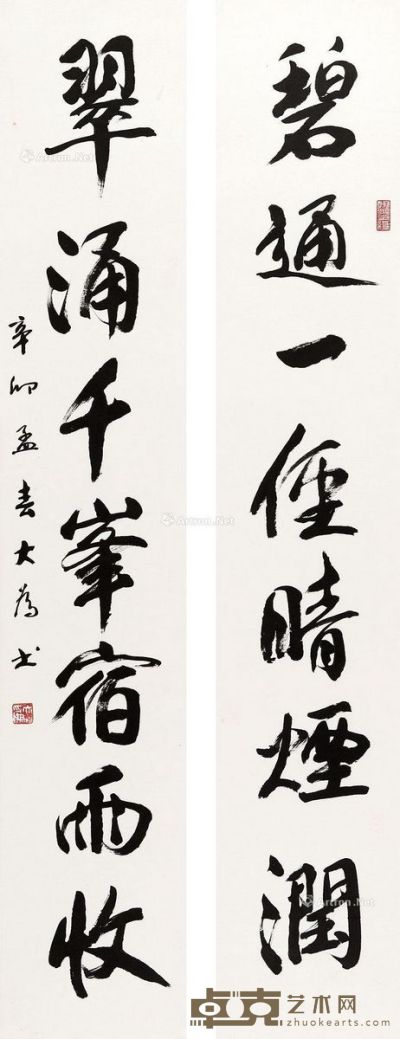 碧通一径晴煙潤
翠涌千峯宿雨收
辛卯孟春大为书
Artron.Net
Artron.Net
Artron.Net
Artron.Net
卓克艺术网
www.zhuokearts.com